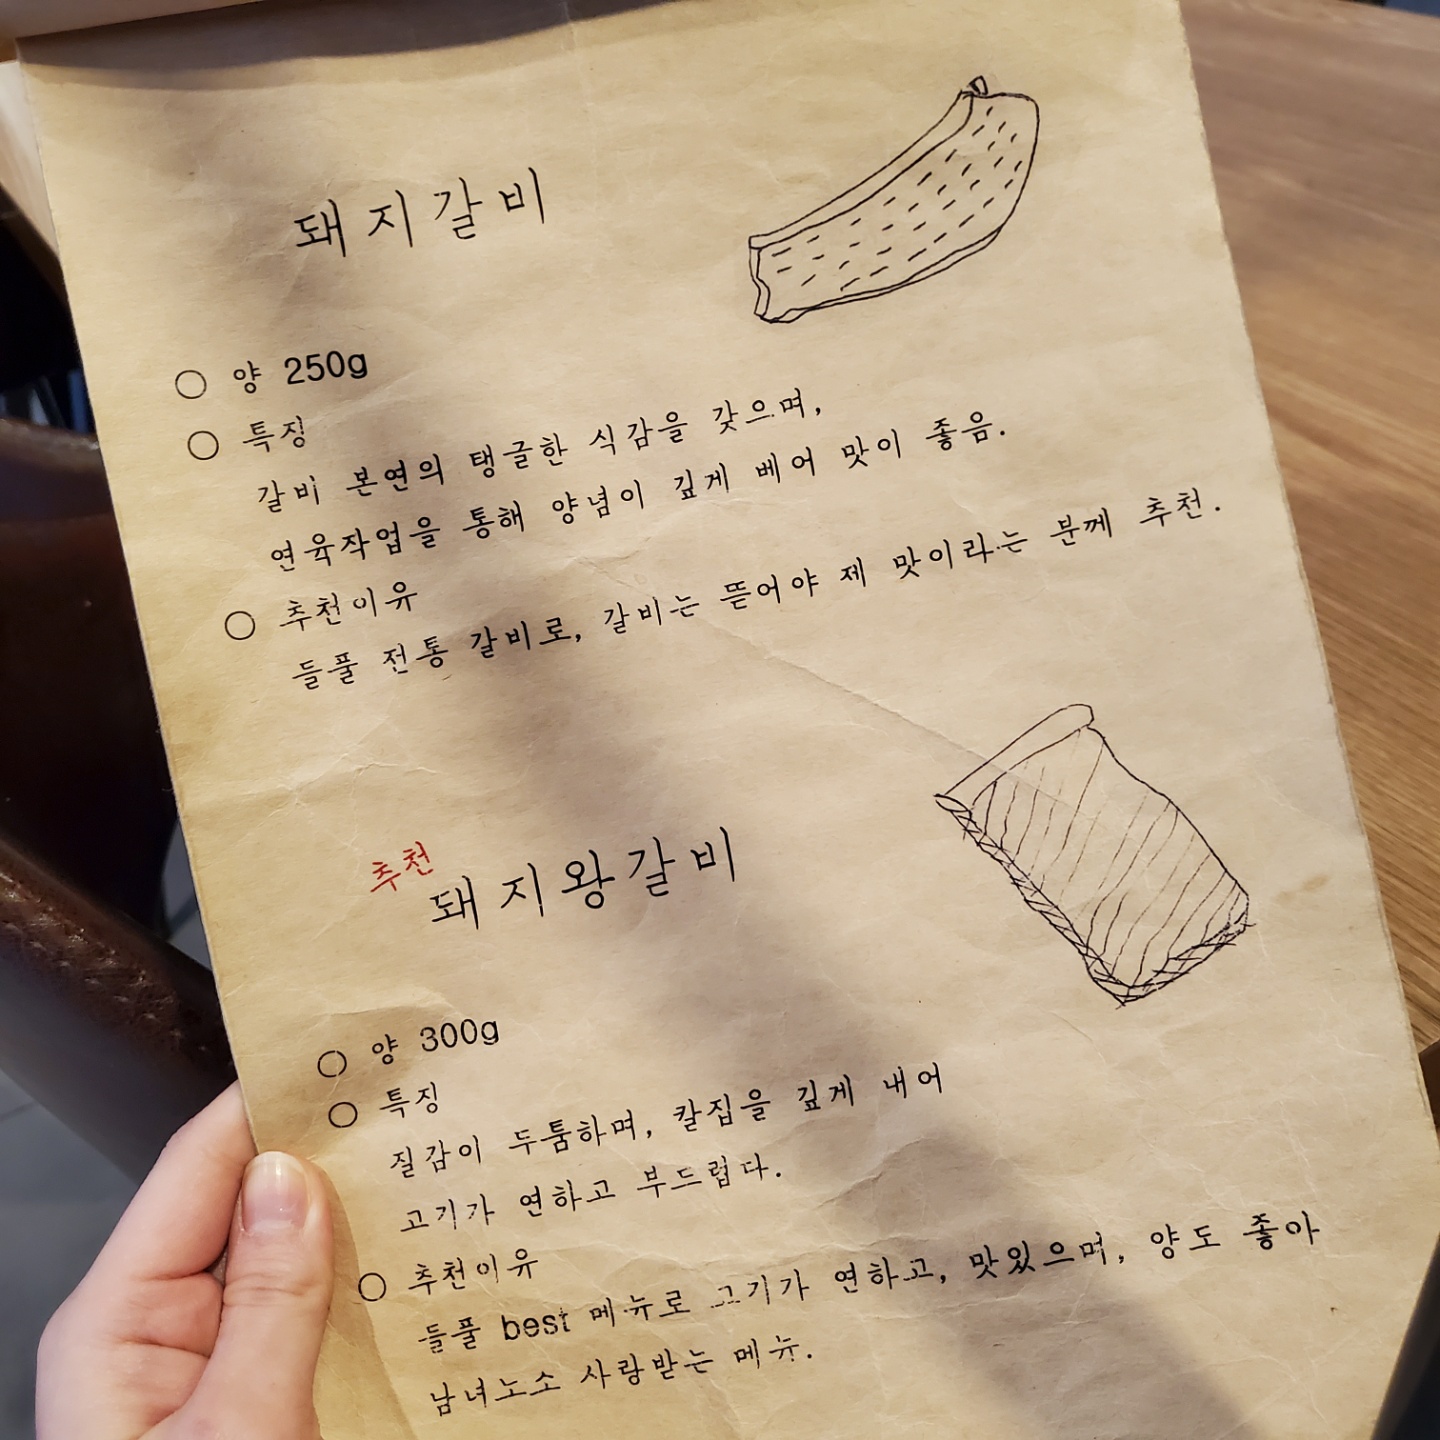 돼지갈비
○ 양 250g
○ 특징
갈비 본연의 탱글한 식감을 갖으며,
연육작업을 통해 양념이 깊게 베어 맛이 좋음.
○ 추천이유
들풀 전통 갈비로, 갈비는 뜯어야 제 맛이라는 분께 추천.
추천
돼지왕갈비
○ 양 300g
○ 특징
질감이 두툼하며, 칼집을 깊게 내어
고기가 연하고 부드럽다.
○ 추천이유
들풀 best 메뉴로 고기가 연하고, 맛있으며, 양도 좋아
남녀노소 사랑받는 메뉴.